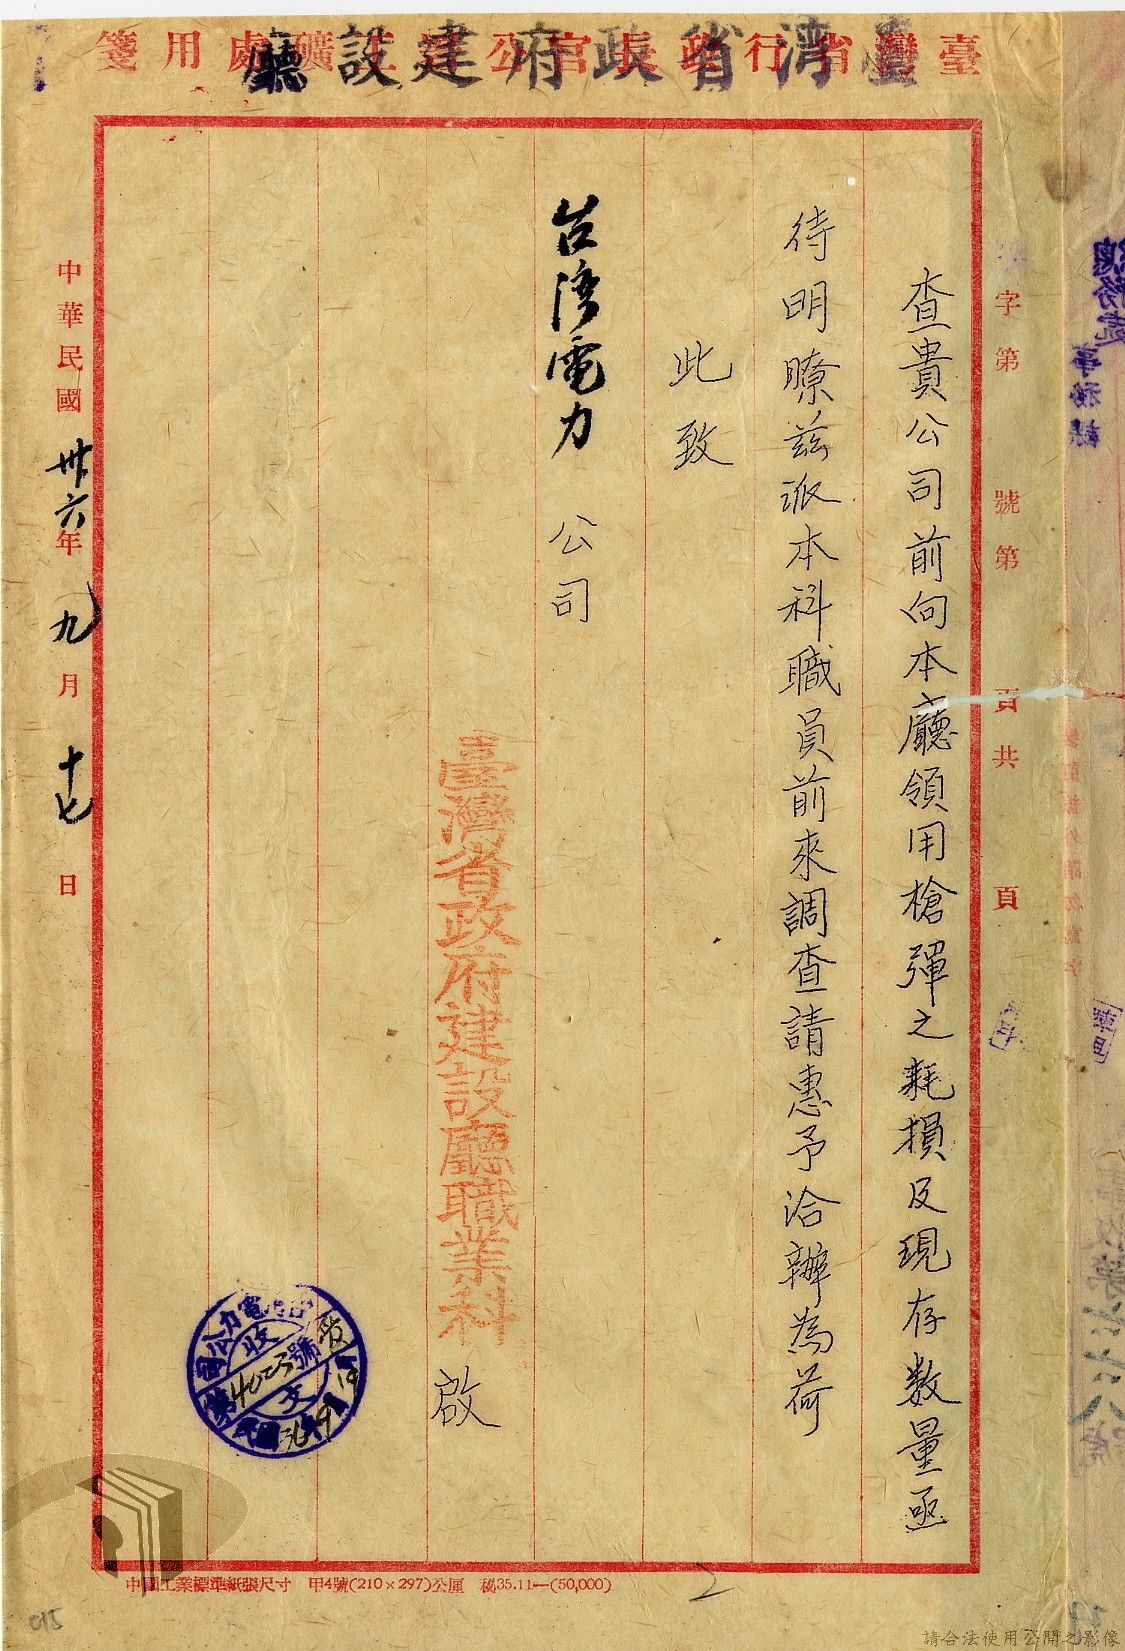 臺灣省政府建設廳
字第 號第 頁共 頁
查貴公司前向本廳領用槍彈之耗損及現存數量亟
待明瞭茲派本科職員前來調查請惠予洽辦為荷
此致
台湾電力 公司
臺灣省政府建設廳職業科 啟
中華民國卅六年九月十七日
收文
第4023號
中國工業標準紙張尺寸 甲4號(210×297)公厘 秘35.11—(50,000)
2
015
請合法使用公開之影像